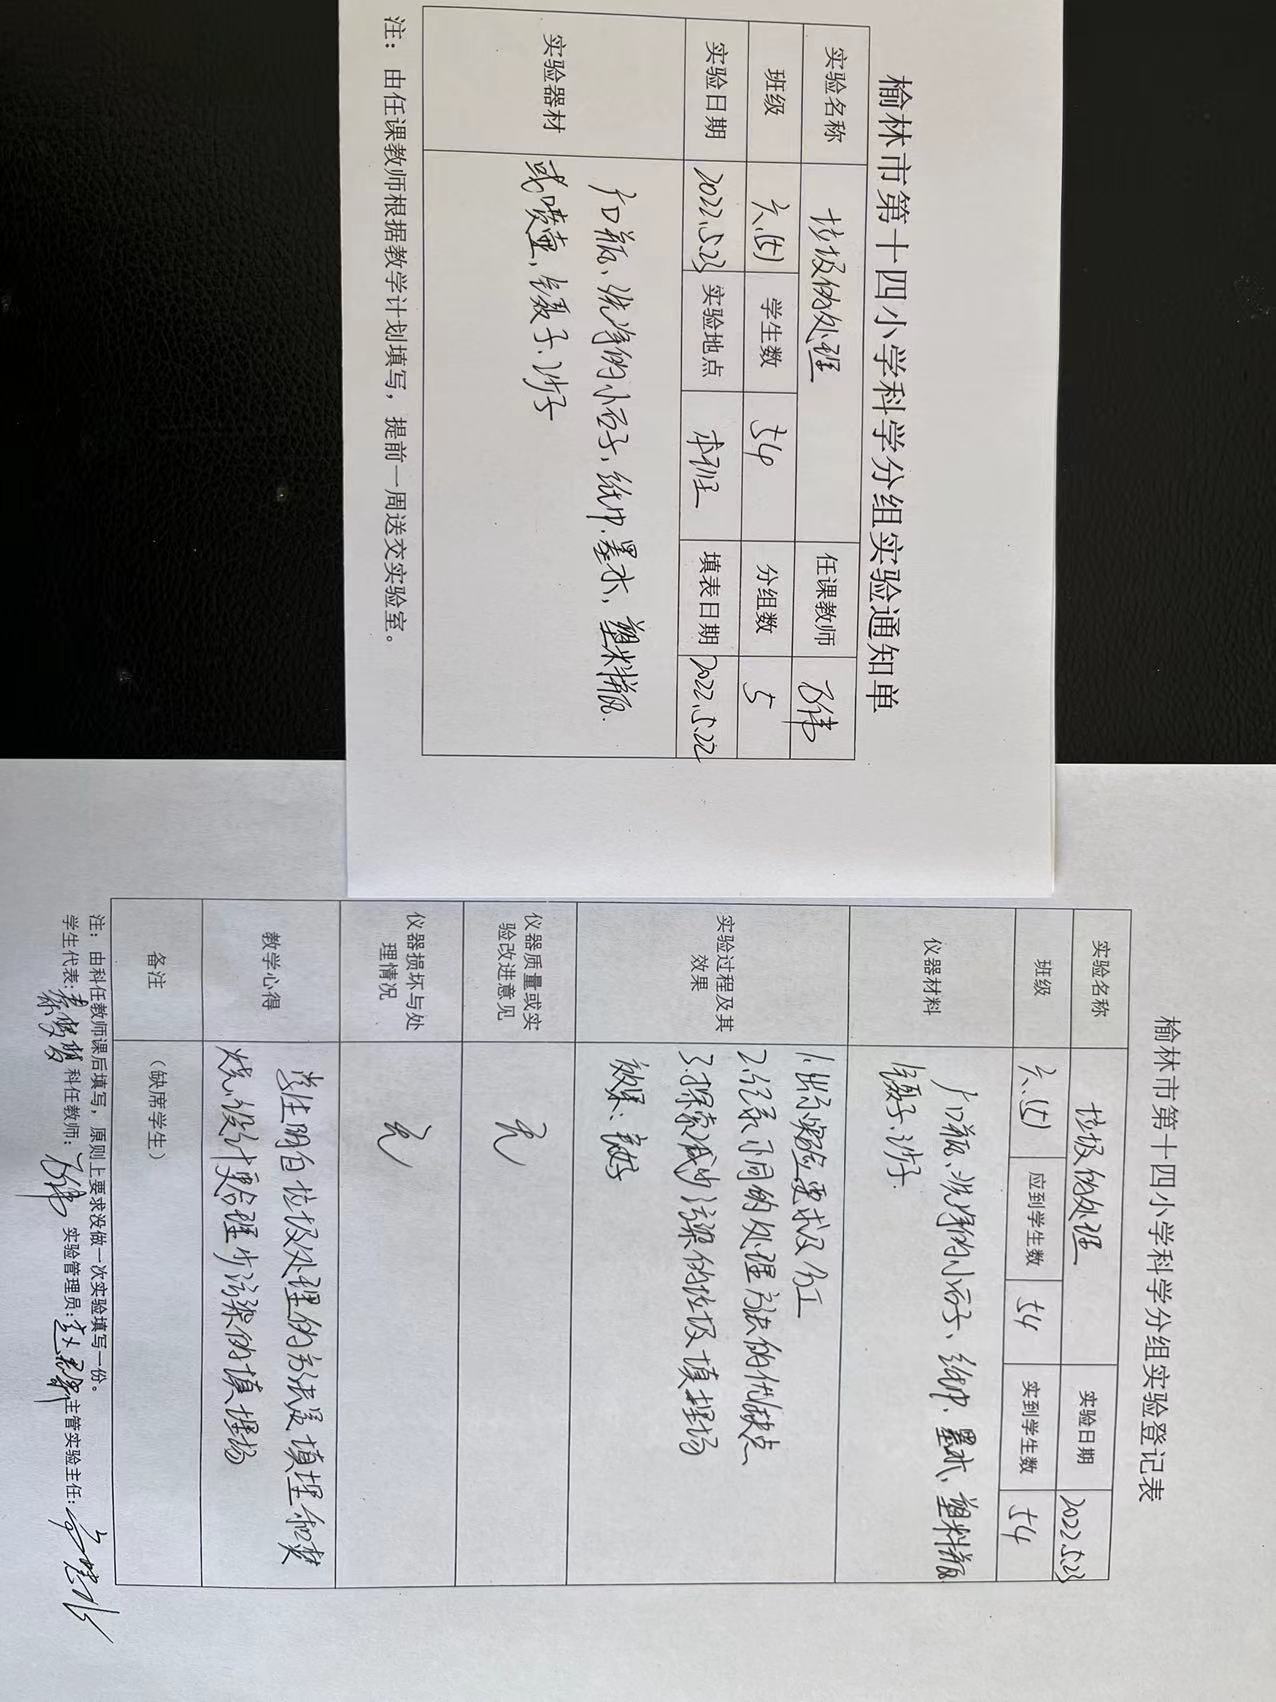 榆林市第十四小学科学分组实验通知单
实验名称 垃圾的处理 任课教师
班级 六.(5) 学生数 54 分组数 5
实验日期 2022.5.23 实验地点 本班 填表日期 2022.5.22
实验器材 广口瓶、洗净的小石子,纸巾.墨水,塑料瓶
或喷壶,镊子、沙子
注:由任课教师根据教学计划填写,提前一周送交实验室。
榆林市第十四小学科学分组实验登记表
实验名称 垃圾的处理 实验日期 2022.5.23
班级 六.(5) 应到学生数 54 实到学生数 54
仪器材料 广口瓶、洗净的小石子、纸巾、墨水、塑料瓶
镊子、沙子
实验过程及其
效果
1.出示实验要求及分工
2.记录不同的处理方法的优缺点
3.探索减少污染的垃圾填埋场
效果:良好
仪器质量或实
验改进意见 无
仪器损坏与处
理情况 无
教学心得 学生明白垃圾处理的方法是填埋和焚
烧,设计更合理少污染的填埋场
备注 (缺席学生)
注:由科任教师课后填写,原则上要求没做一次实验填写一份。
学生代表: 科任教师: 实验管理员: 主管实验主任: